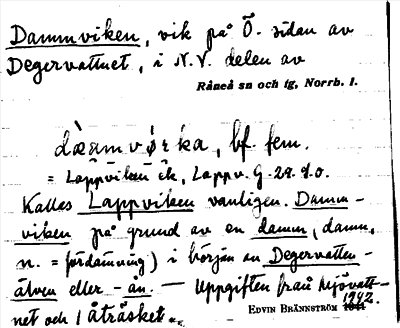 Dammviken, vik på Ö. sidan av
Degervattnet, i N.V. delen av
Råneå sn och tg, Norrb. l.
bf. fem.
= Lappviken ek, Lappv. G. 29. 9.0.
Kallas Lappviken vanligen. Damm-
viken på grund av en damm, damm,
n. = fördämning) i början av Degervatten-
älven eller -ån. — Uppgiften från Mjövatt-
net och 1 Åträsket.
EDVIN BRÄNNSTRÖM 1942.